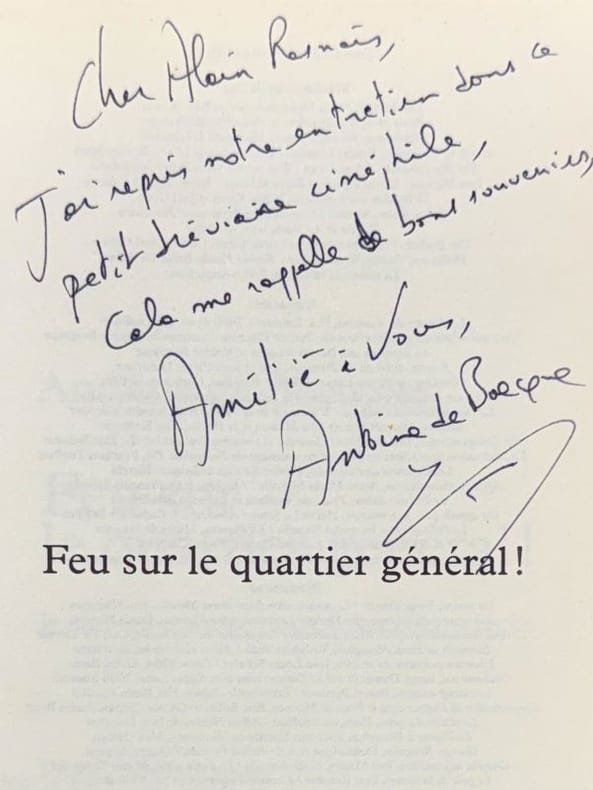 Cher Alain Resnais,
J'ai repris notre entretien dans ce
petit bréviaire cinéphile,
Cela me rappelle de bons souvenirs,
Amitié à Vous,
Antoine de Baecque
Feu sur le quartier général !